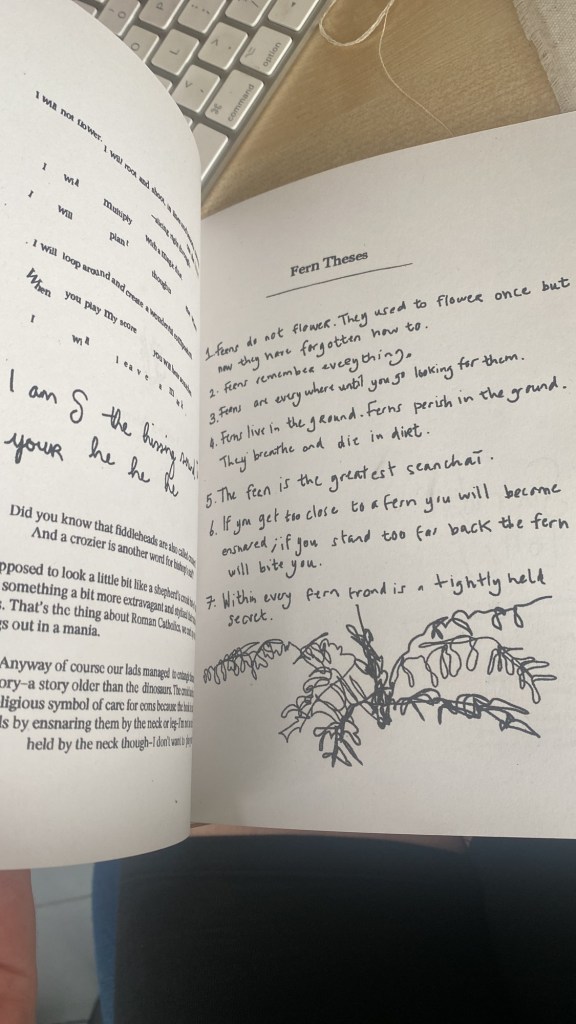 option
command
I will not flower. I will root and shoot, in
I will multiply with a
I will plant thoughts
I will loop around and create a wonderful
When you play my score you will
I will leave a
I am the hissing
your he he he
Did you know that fiddleheads are also called
And a crozier is another word for
pposed to look a little bit like a shepherd's
something a bit more extravagant and
s. That's the thing about Roman Catholics,
gs out in a mania.
Anyway of course our lads managed to
ory–a story older than the dinosaurs. The
ligious symbol of care for eons because the
ls by ensnaring them by the neck or leg–I'm
held by the neck though–I don't want to
Fern Theses
1. Ferns do not flower. They used to flower once but
now they have forgotten how to.
2. Ferns remember everything.
3. Ferns are everywhere until you go looking for them.
4. Ferns live in the ground. Ferns perish in the ground.
They breathe and die in dirt.
5. The fern is the greatest seanchaí.
6. If you get too close to a fern you will become
ensnared; if you stand too far back the fern
will bite you.
7. Within every fern frond is a tightly held
secret.